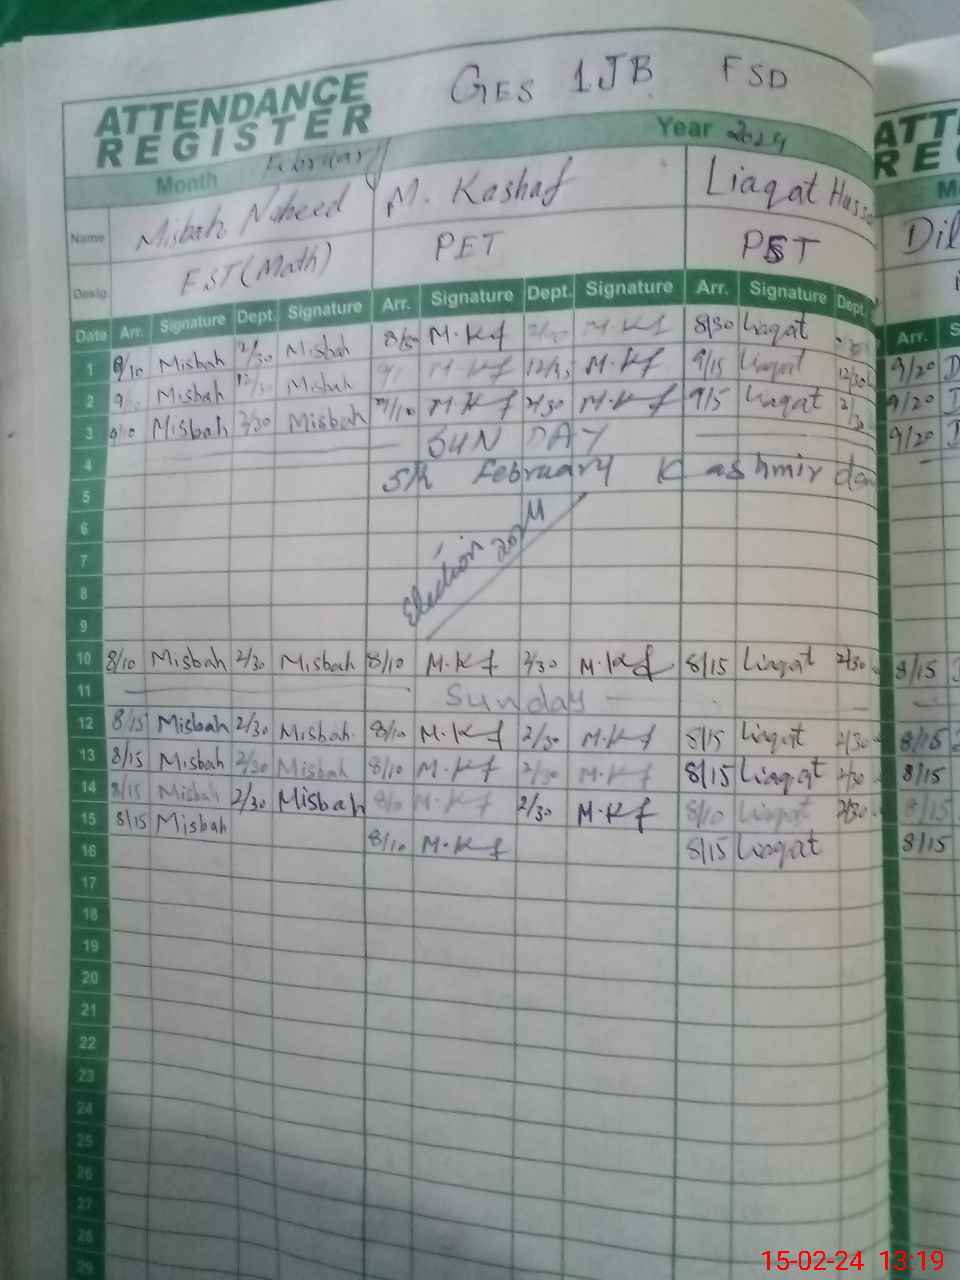 GES 1JB FSD
ATTENDANCE REGISTER
Month February Year 2024
Name Misbah Naheed M. Kashaf Liaqat Huss
Desig. EST (Math) PET PST
Date Arr. Signature Dept. Signature Arr. Signature Dept. Signature Arr. Signature Dept.
1 8/10 Misbah 2/30 Misbah 8/50 M.Kf M.Kf 8/30 Liaqat
2 Misbah Misbah M.Kf M.Kf 9/15 Liaqat 12/30
3 Misbah 2/30 Misbah M.Kf 2/30 M.Kf 9/5 Liaqat 2/30
4 SUNDAY
5 5th February Kashmir day
6
7 Election 2024
8
9
10 8/10 Misbah 2/30 Misbah 8/10 M.Kf 2/30 M.Kf 8/15 Liaqat 2/30
11 Sunday
12 8/15 Misbah 2/30 Misbah 8/10 M.Kf 2/30 M.Kf 8/15 Liaqat 2/30
13 8/15 Misbah 2/30 Misbah 8/10 M.Kf 2/30 M.Kf 8/15 Liaqat 2/30
14 8/15 Misbah 2/30 Misbah 8/10 M.Kf 2/30 M.Kf 8/10 Liaqat 2/30
15 8/15 Misbah 8/10 M.Kf 8/15 Liaqat
16
17
18
19
20
21
22
23
24
25
26
27
28
29
ATT
RE
M
Dil
Arr. S
9/20
9/20
9/20
8/15
8/15
8/15
8/15
8/15
15-02-24 13:19